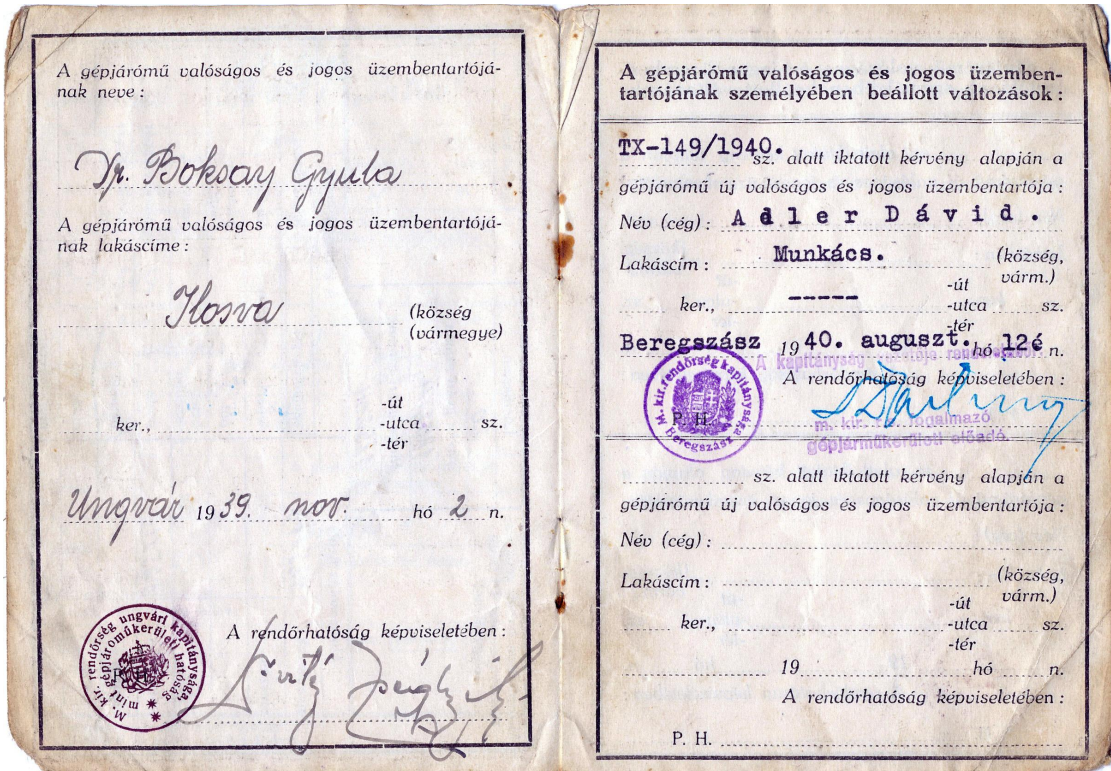 A gépjárómű valóságos és jogos üzembentartójá-
nak neve :
Dr. Boksay Gyula
A gépjárómű valóságos és jogos üzembentartójá-
nak lakáscíme :
Ilosva (község
(vármegye)
-út
ker., -utca sz.
-tér
Ungvár 1939. nov. hó 2 n.
A rendőrhatóság képviseletében :
P. H.
M. kir. rendőrség ungvári kapitánysága,
mint gépjáróműkerületi hatóság
A gépjárómű valóságos és jogos üzemben-
tartójának személyében beállott változások :
TX-149/1940. sz. alatt iktatott kérvény alapján a
gépjárómű új valóságos és jogos üzembentartója :
Név (cég) : Adler Dávid.
Lakáscím : Munkács. (község,
várm.)
-út
ker., ----- -utca sz.
-tér
Beregszász 1940. auguszt. hó 12é n.
A kapitányság
A rendőrhatóság képviseletében :
P. H.
M. kir. rendőrség kapitánysága
Beregszász
m. kir. fogalmazó
gépjárműkerületi előadó.
sz. alatt iktatott kérvény alapján a
gépjárómű új valóságos és jogos üzembentartója :
Név (cég) :
Lakáscím : (község,
várm.)
-út
ker., -utca sz.
-tér
19 hó n.
A rendőrhatóság képviseletében :
P. H.